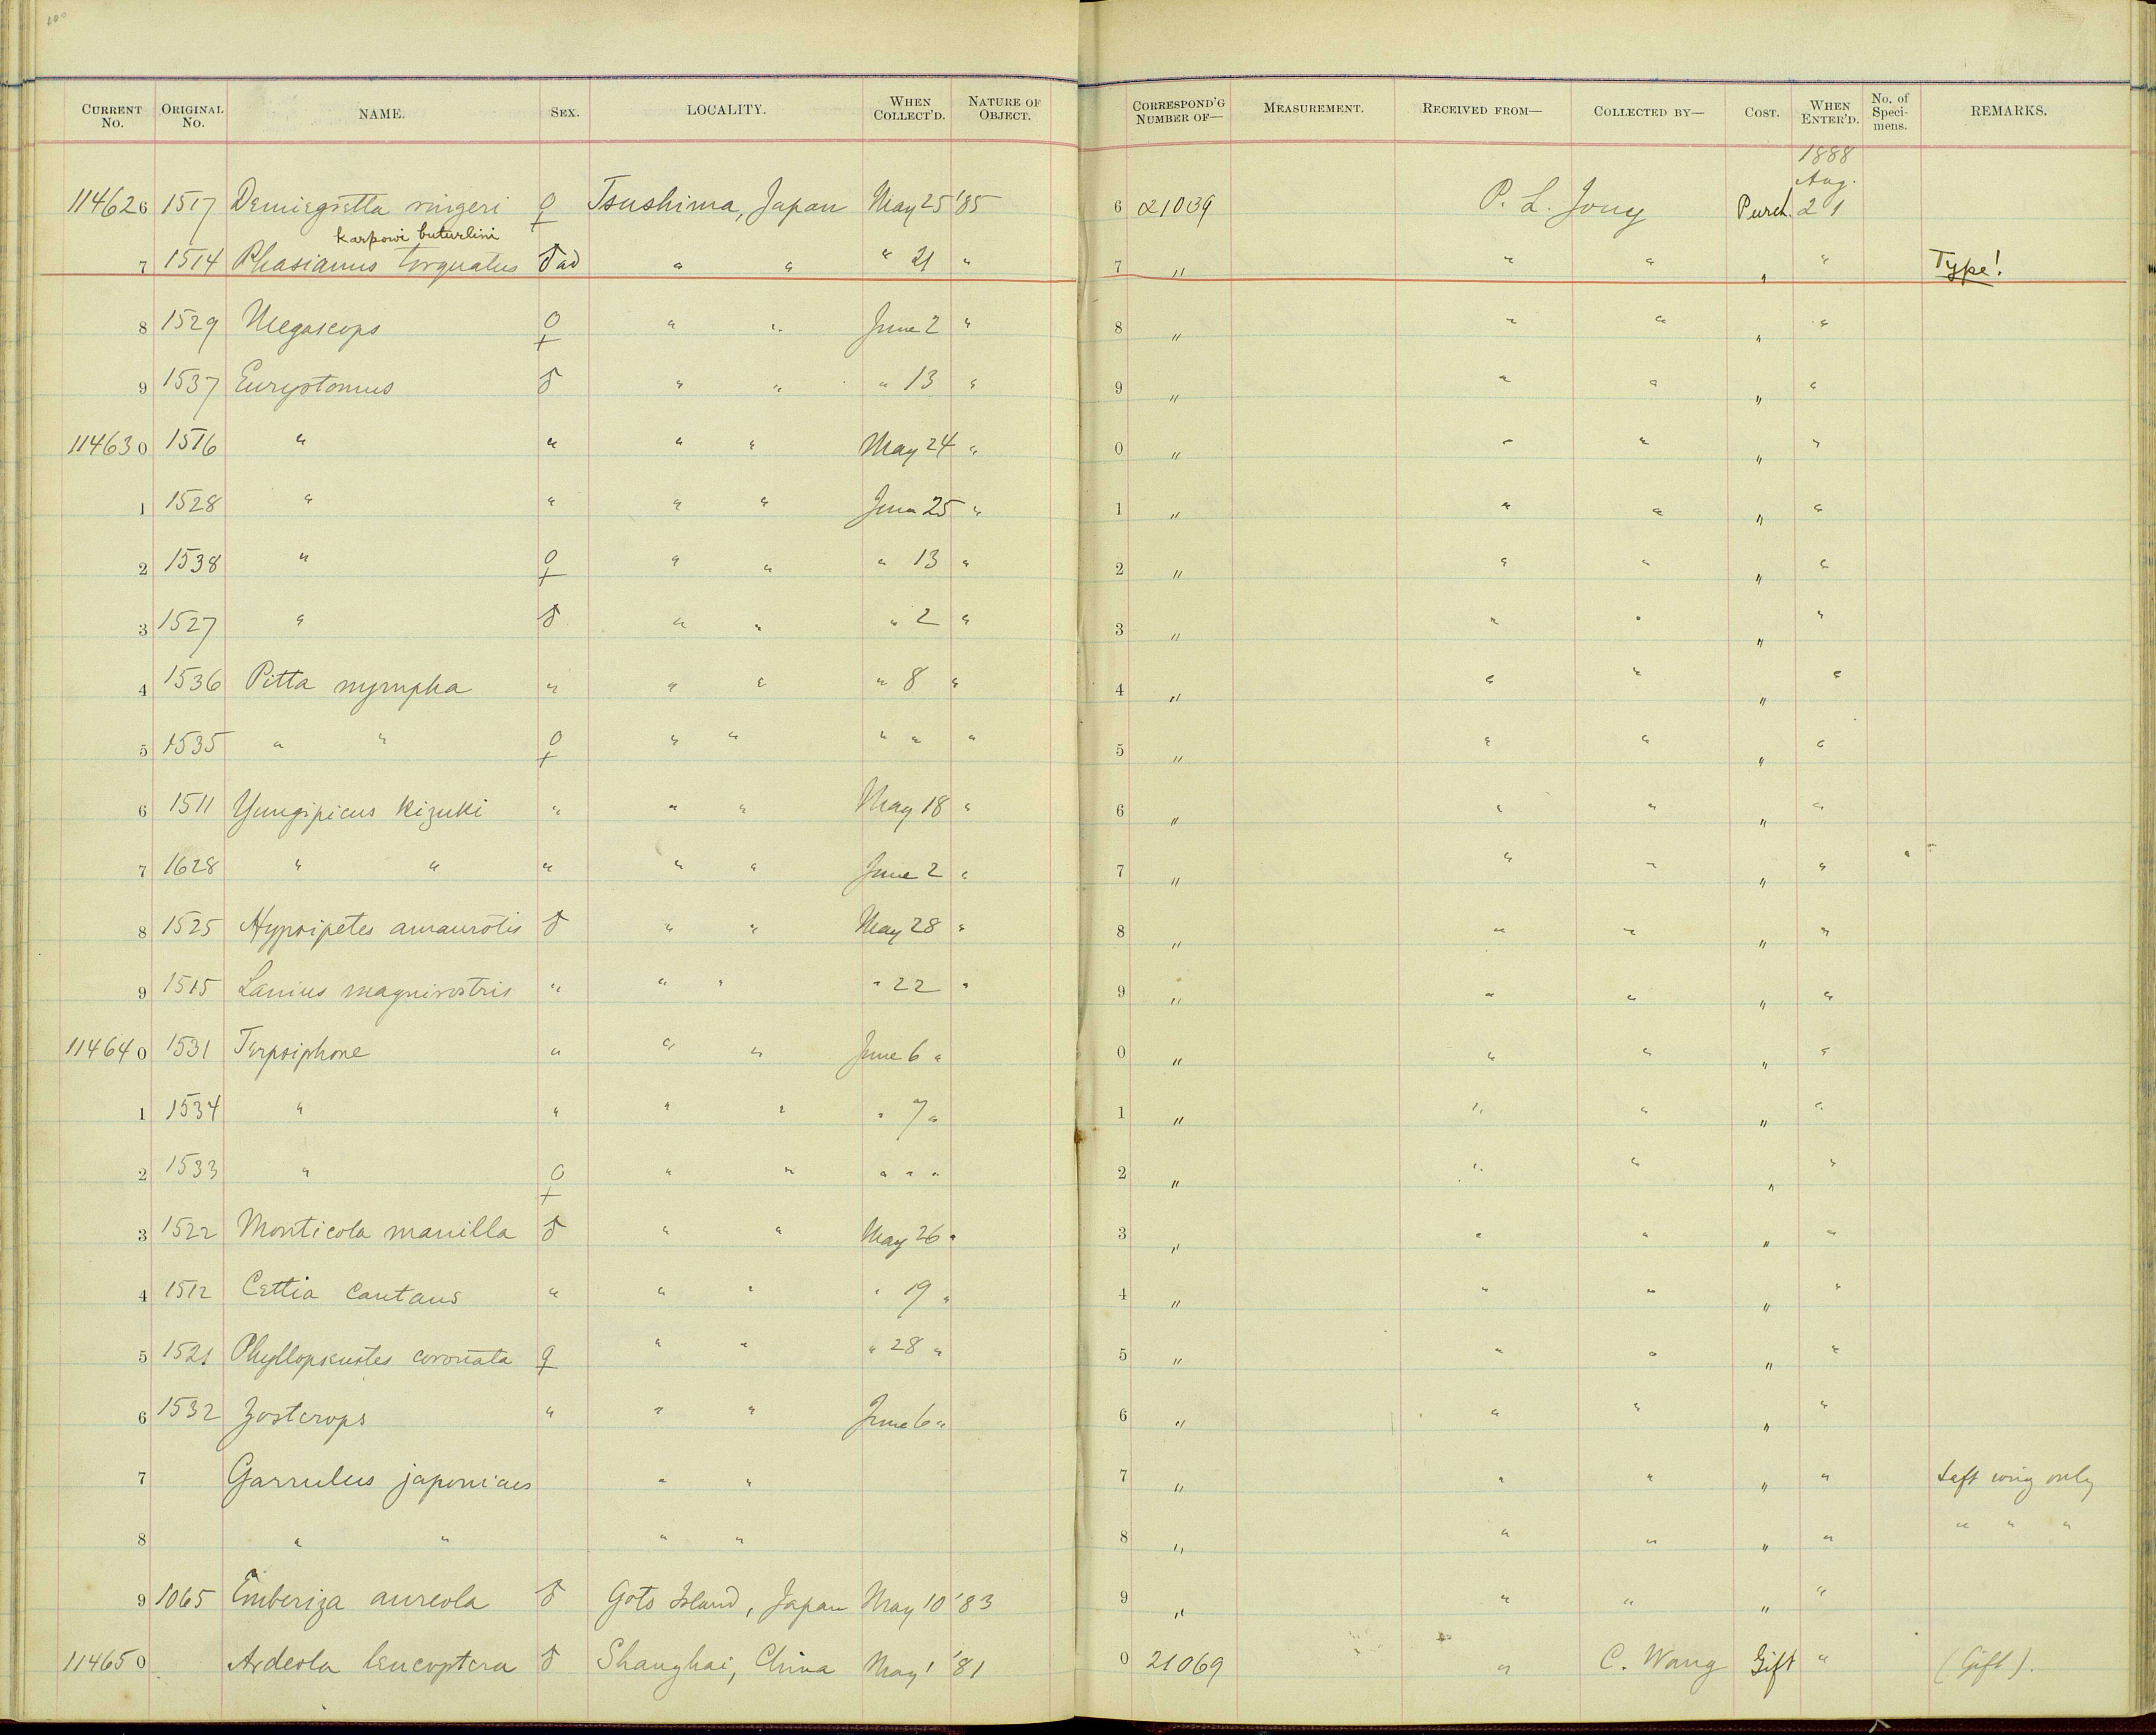 100
CURRENT No. ORIGINAL No. NAME. SEX. LOCALITY. WHEN COLLECT'D. NATURE OF OBJECT. CORRESPOND'G NUMBER OF— MEASUREMENT. RECEIVED FROM— COLLECTED BY— COST. WHEN ENTER'D. No. of Specimens. REMARKS.
1888
Aug.
114626 1517 Demiegretta ringeri ♀ Tsushima, Japan May 25 '85 6 21039 P. L. Jouy Purch. 21
karpowi buturlini
7 1514 Phasianus torquatus ♂ ad " " " 21 " 7 " " " " " Type!
8 1529 Megascops ♀ " " June 2 " 8 " " " " "
9 1537 Eurystomus ♂ " " " 13 " 9 " " " " "
114630 1516 " " " " May 24 " 0 " " " " "
1 1528 " " " " June 25 " 1 " " " " "
2 1538 " ♀ " " " 13 " 2 " " " " "
3 1527 " ♂ " " " 2 " 3 " " " " "
4 1536 Pitta nympha " " " " 8 " 4 " " " " "
5 1535 " " ♀ " " " " " 5 " " " " "
6 1511 Yungipicus kizuki " " " May 18 " 6 " " " " "
7 1628 " " " " " June 2 " 7 " " " " "
8 1525 Hypsipetes amaurotis ♂ " " May 28 " 8 " " " " "
9 1515 Lanius magnirostris " " " " 22 " 9 " " " " "
114640 1531 Terpsiphone " " " June 6 " 0 " " " " "
1 1534 " " " " " 7 " 1 " " " " "
2 1533 " ♀ " " " " " 2 " " " " "
3 1522 Monticola manilla ♂ " " May 26 " 3 " " " " "
4 1512 Cettia cantans " " " " 19 " 4 " " " " "
5 1521 Phyllopseustes coronata ♀ " " " 28 " 5 " " " " "
6 1532 Zosterops " " " June 6 " 6 " " " " "
7 Garrulus japonicus " " 7 " " " " " Left wing only
8 " " " " 8 " " " " " " " "
9 1065 Emberiza aureola ♂ Goto Island, Japan May 10 '83 9 " " " " "
114650 Ardeola leucoptera ♂ Shanghai, China May 1 '81 0 21069 " C. Wang Gift " (Gift).